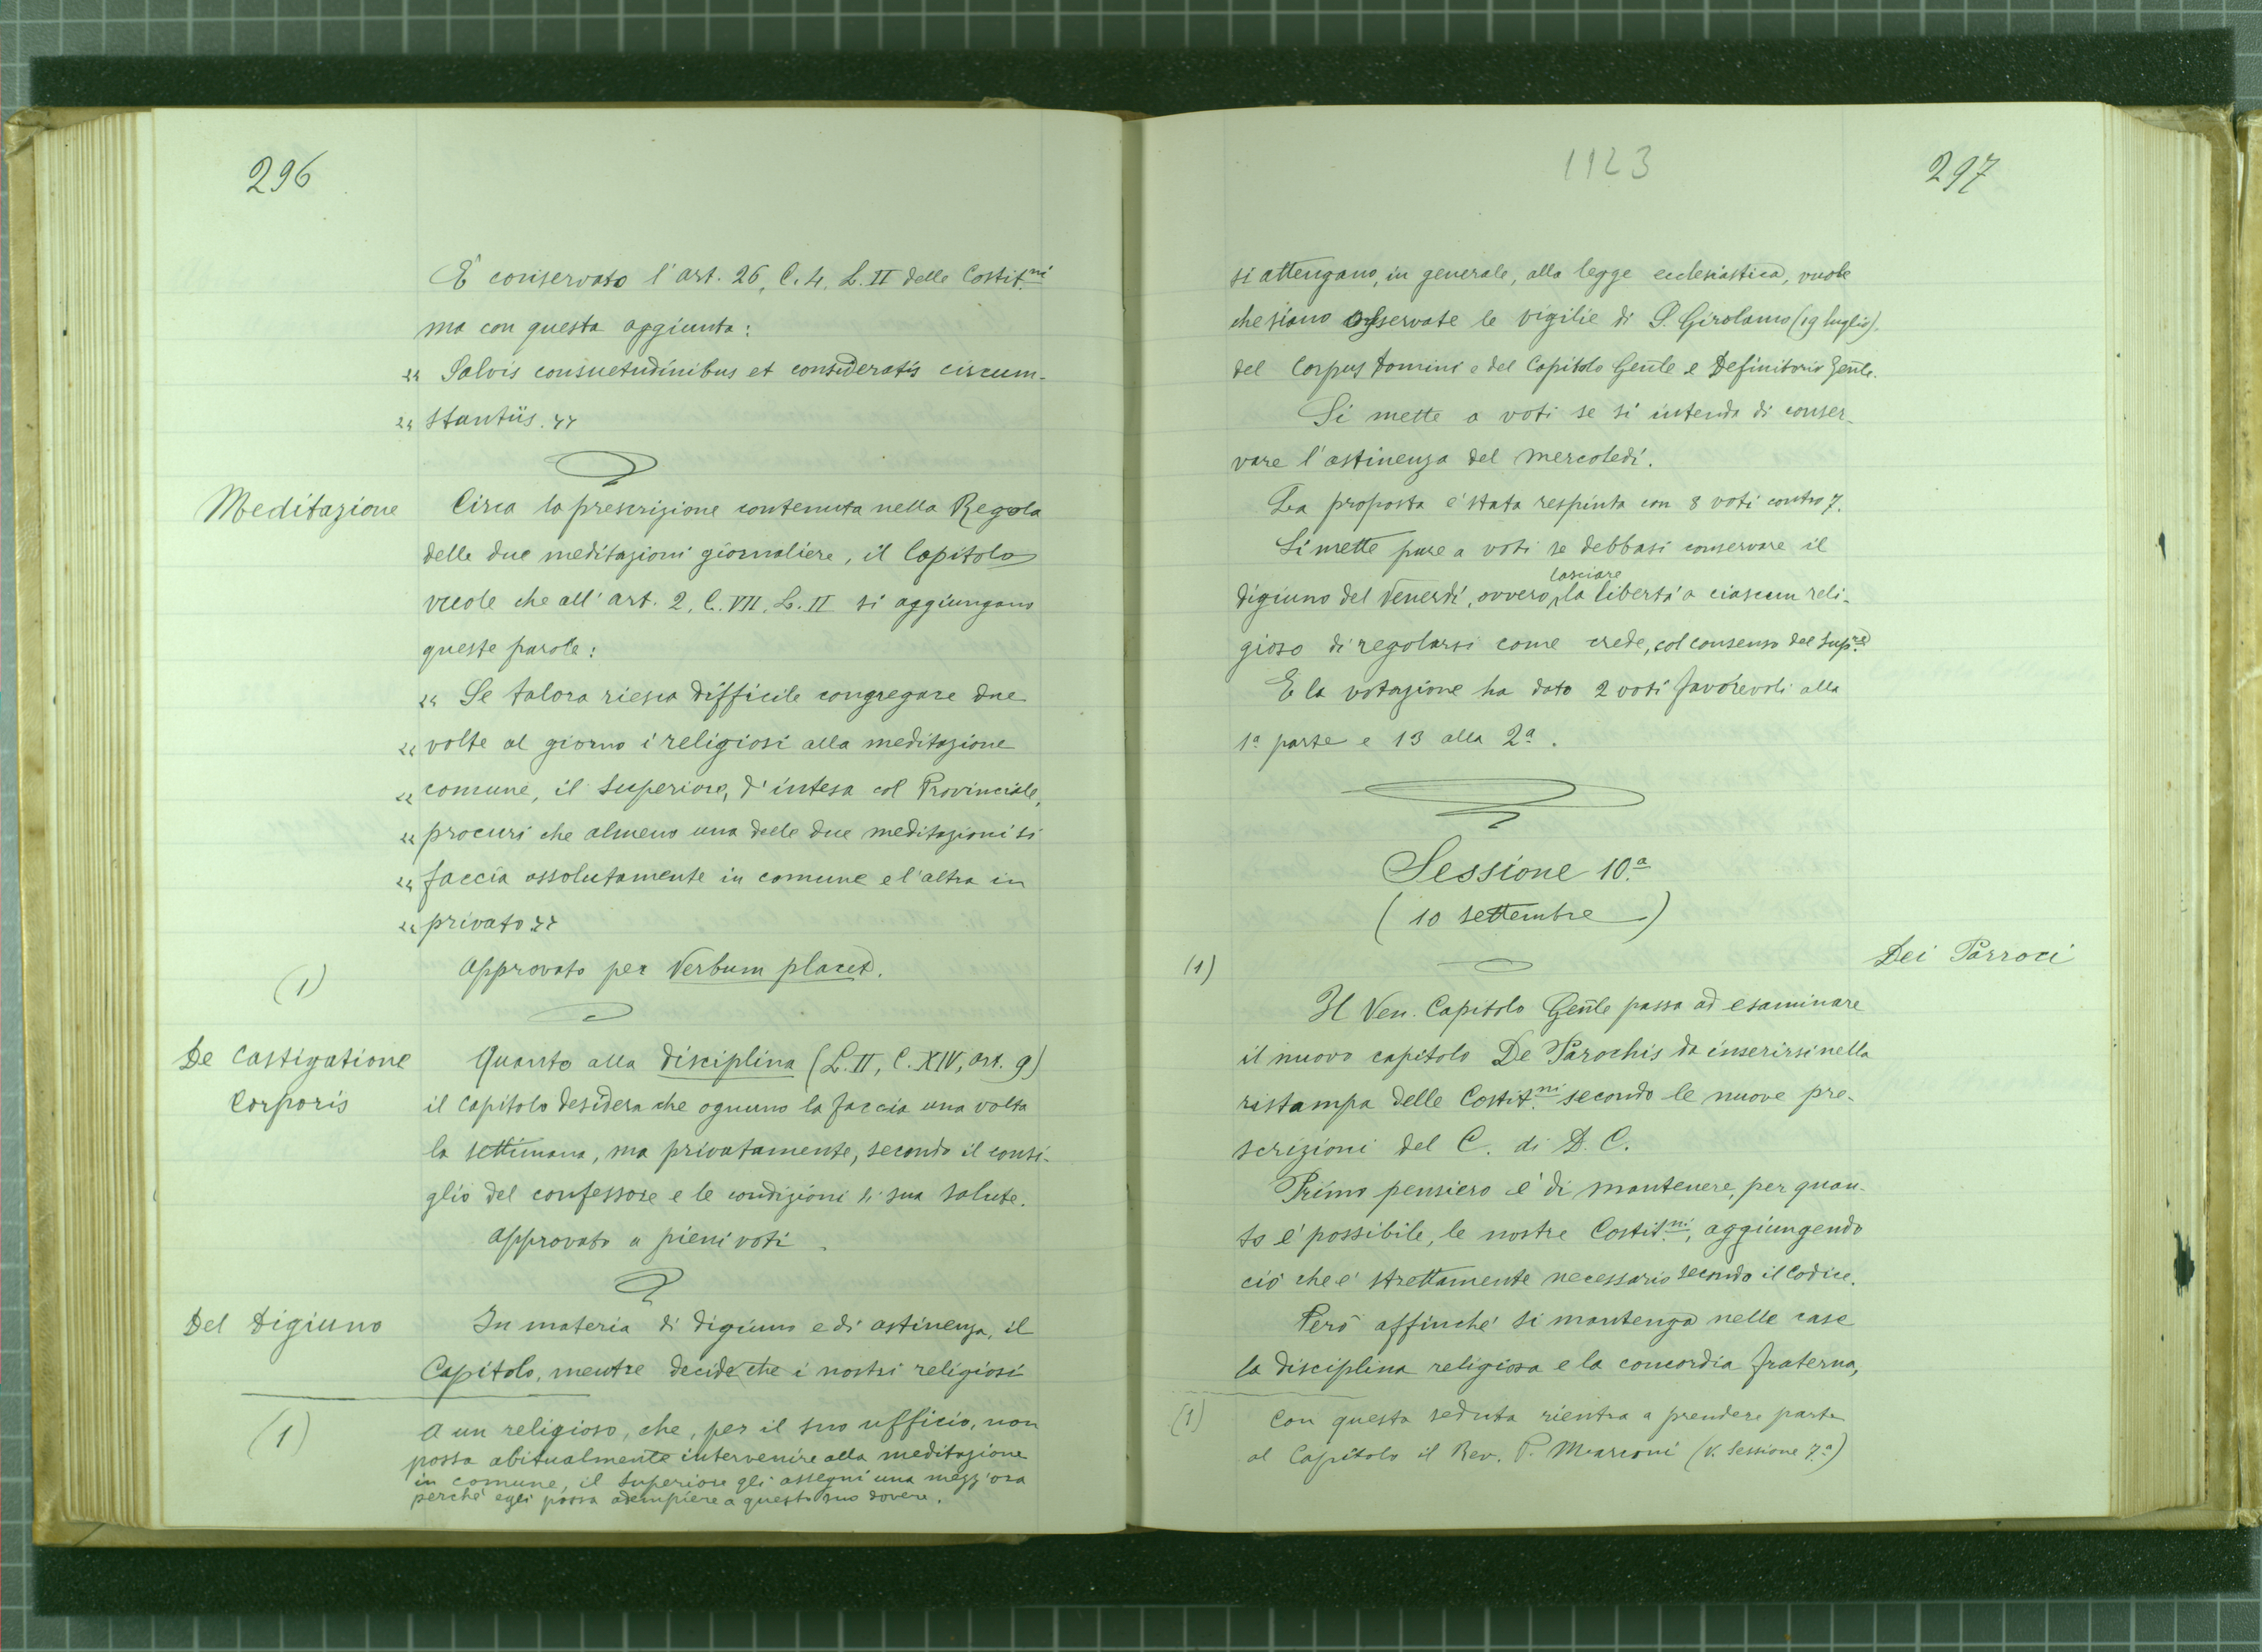 296
È conservato l'art. 26, C. 4, L. II delle Costit.ni
ma con questa aggiunta:
" Salvis consuetudinibus et consideratis circum-
" stantiis. "
Meditazione
Circa la prescrizione contenuta nella Regola
delle due meditazioni giornaliere, il Capitolo
vuole che all'art. 2, C. VII, L. II si aggiungano
queste parole:
" Se talora riesca difficile congregare due
" volte al giorno i religiosi alla meditazione
" comune, il Superiore, d'intesa col Provinciale,
" procuri che almeno una delle due meditazioni si
" faccia assolutamente in comune e l'altra in
" privato "
Approvato per Verbum placet.
(1)
De Castigatione
Corporis
Quanto alla disciplina (L. II, C. XIV, art. 9)
il Capitolo desidera che ognuno la faccia una volta
la settimana, ma privatamente, secondo il consi-
glio del confessore e le condizioni di sua salute.
Approvato a pieni voti.
Del Digiuno
In materia di digiuno e di astinenza, il
Capitolo, mentre decide che i nostri religiosi
(1)
A un religioso, che, per il suo ufficio, non
possa abitualmente intervenire alla meditazione
in comune, il Superiore gli assegni una mezz'ora
perché egli possa adempiere a questo suo dovere.
1123
297
si attengano, in generale, alla legge ecclesiastica, vuole
che siano osservate le vigilie di S. Girolamo (19 luglio),
del Corpus Domini e del Capitolo Genle e Definitorio Genle.
Si mette a voti se si intenda di conser-
vare l'astinenza del mercoledì.
La proposta è stata respinta con 8 voti contro 7.
Si mette pure a voti se debbasi conservare il
lasciare
digiuno del Venerdì, ovvero la libertà a ciascun reli-
gioso di regolarsi come crede, col consenso del Sup.re
E la votazione ha dato 2 voti favorevoli alla
1ª parte e 13 alla 2ª.
Sessione 10.ª
(10 settembre)
(1)
Dei Parroci
Il Ven. Capitolo Genle passa ad esaminare
il nuovo capitolo De Parochis da inserirsi nella
ristampa delle Costit.ni secondo le nuove pre-
scrizioni del C. di D. C.
Primo pensiero è di mantenere, per quan-
to è possibile, le nostre Costit.ni, aggiungendo
ciò che è strettamente necessario secondo il Codice.
Però affinché si mantenga nelle case
la disciplina religiosa e la concordia fraterna,
(1)
Con questa seduta rientra a prendere parte
al Capitolo il Rev. P. Marconi (V. Sessione 7.ª)